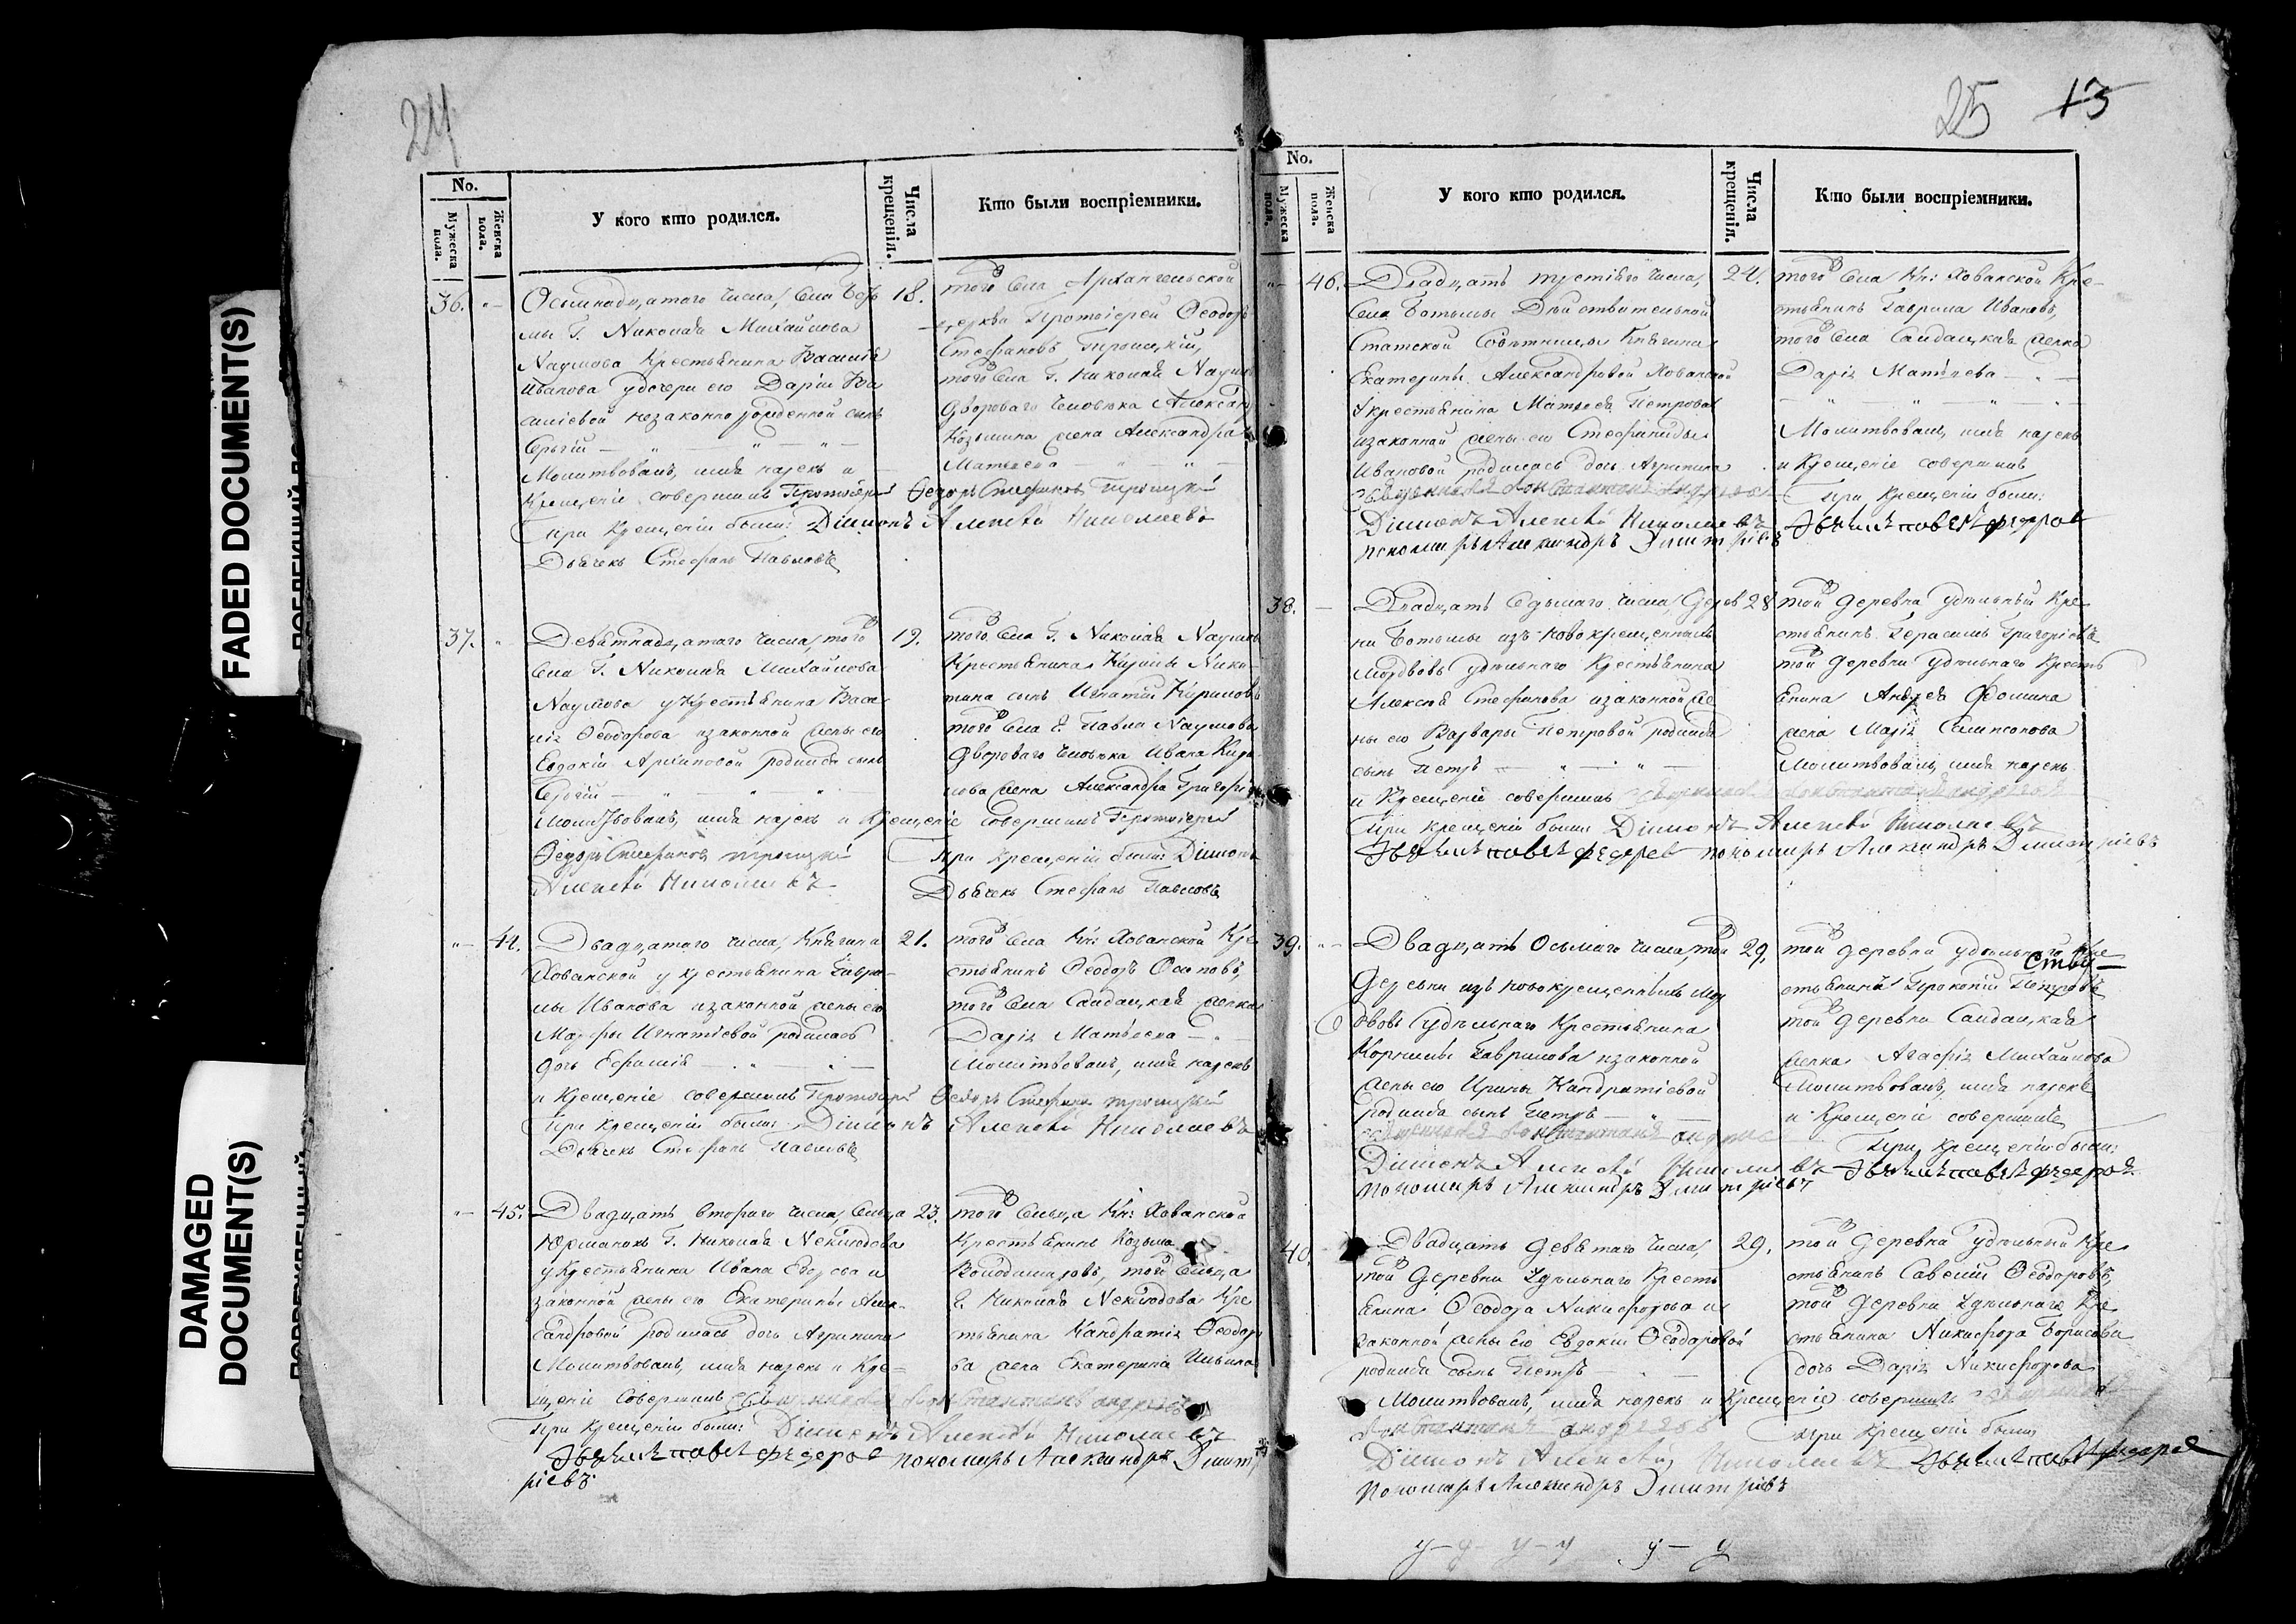 24
No.
Мужеска пола.
Женска пола.
У кого кто родился.
Числа крещенія.
Кто были воспріемники.
36. "
Осьмнадцатого числа, села Боть
мы Г. Николая Михайлова
Наумова Крестьянина Василія
Иванова у дочери его Дарьи Ва
силіевой незаконно рожденной сынъ
Сергій — " — " —
Молитвовалъ, имя нарекъ и
Крещеніе совершилъ Протоіерей Феодоръ Стефановъ Троицкій
При Крещеніи были: Діяконъ Алексѣй Николаевъ
Дьячекъ Стефанъ Павловъ
18.
того села Архангельской
церкви Протоіерей Феодоръ
Стефановъ Троицкій,
того села Г. Николая Наумо
двороваго человѣка Алексан
Козьмина жена Александра
Матвеева — " — " —
37. "
Девятнадцатого числа, того
села Г. Николая Михайлова
Наумова у Крестьянина Васи
лія Феодорова изаконной жены его
Евдокіи Архиповой родился сынъ
Сергій — " — " — "
Молитвовалъ, имя нарекъ и Крещеніе совершилъ Протоіерей
Феодоръ Стефановъ Троицкій При Крещеніи были: Діяконъ
Алексѣй Николаевъ Дьячекъ Стефанъ Павловъ
19.
того села Г. Николая Наумов
Крестьянина Кирилы Ники-
тина сынъ Игнатій Кириловъ
того села Г. Павла Наумова
двороваго человѣка Ивана Кири
лова жена Александра Григорі
" 44.
Двадцатого числа, Княгини
Хованской у крестьянина Гаври-
лы Иванова изаконной жены его
Марфы Игнатіевой родилась
дочь Ефимія — " — " —
и Крещеніе совершилъ Протоіерей Феодоръ Стефановъ Троицкій
При Крещеніи были: Діяконъ Алексѣй Николаевъ
Дьячекъ Стефанъ Павловъ
21.
того села Кн: Хованской Кре
стьянинъ Феодоръ Осиповъ,
того села Салдацкая женка
Дарія Матвеева — " —
Молитвовалъ, имя нарекъ
" 45.
Двадцать втораго числа, сельца
Юрманокъ Г. Николая Неклюдова
у Крестьянина Ивана Егорова и
законной жены его Екатерины Алек-
сандровой родилась дочь Агрипина
Молитвовалъ, имя нарекъ и Кре-
щеніе совершилъ священникъ Константинъ Андреевъ
При Крещеніи были: Діяконъ Алексѣй Николаевъ
Дьячекъ Павелъ Федоровъ пономарь Александръ Дмит
ріевъ
23.
того сельца Кн: Хованской
Крестьянинъ Козьма
Володимаровъ, того сельца
Г. Николая Неклюдова Кре
стьянина Кандратія Феодоро
ва жена Екатерина
25 13
No.
Мужеска пола.
Женска пола.
У кого кто родился.
Числа крещенія.
Кто были воспріемники.
" 46.
Двадцать третіего числа,
села Ботьмы Действительной
Статской Совѣтницы Княгини
Екатерины Александровой Хованской
у крестьянина Матвея Петрова
изаконной жены его Стефаниды
Ивановой родилась дочь Агрипина
священникъ Константинъ Андреевъ
Діяконъ Алексѣй Николаевъ Дьячекъ Павелъ Федоровъ
пономарь Александръ Дмитріевъ
24.
того села Кн: Хованской Кре-
стьянинъ Гаврила Ивановъ,
того села Салдацкая женка
Дарія Матвеева — " —
— " — " — " —
Молитвовалъ, имя нарекъ
и Крещеніе совершилъ
При Крещеніи были:
38. —
Двадцать седьмаго числа, дерев
ни Ботьмы изъ новокрещенныхъ
мордвовъ удѣльнаго Крестьянина
Алексѣя Стефанова изаконной же
ны его Варвары Петровой родился
сынъ Петръ — " — " —
и Крещеніе совершилъ священникъ Константинъ Андреевъ
При Крещеніи были Діяконъ Алексѣй Николаевъ
Дьячекъ Павелъ Федоровъ пономарь Александръ Дмитріевъ
28
той деревни удѣльный Кре
стьянинъ Герасимъ Григоріевъ
той деревни удѣльнаго Кресть
янина Андрея Фомина
жена Марія Сампсонова
Молитвовалъ, имя нарекъ
39. "
Двадцать осьмаго числа, той
деревни изъ новокрещенныхъ мор
двовъ удѣльнаго Крестьянина
Корнилы Гаврилова изаконной
жены его Ирины Кандратіевой
родился сынъ Петръ — " —
священникъ Константинъ Андреевъ
Діяконъ Алексѣй Николаевъ Дьячекъ Павелъ Федоровъ
пономарь Александръ Дмитріевъ
29.
той деревни удѣльнаго Кре
стья—
стьянина Прокопій Петровъ
той деревни Салдацкая
женка Агафія Михайлова
Молитвовалъ, имя нарекъ
и Крещеніе совершилъ
При Крещеніи были:
40.
Двадцать девятаго числа,
той деревни удѣльнаго Кресть
янина Феодора Никифорова и
законной жены его Евдокіи Феодоровой
родился сынъ Петръ — " —
Молитвовалъ, имя нарекъ и Крещеніе совершилъ священникъ
Константинъ Андреевъ При Крещеніи были
Діяконъ Алексѣй Николаевъ Дьячекъ Павелъ Федоровъ
пономарь Александръ Дмитріевъ
29.
той деревни удѣльный Кре
стьянинъ Савелій Феодоровъ,
той деревни удѣльнаго Кре
стьянина Никифора Борисова
дочь Дарія Никифорова
FADED DOCUMENT(S)
DAMAGED
DOCUMENT(S)